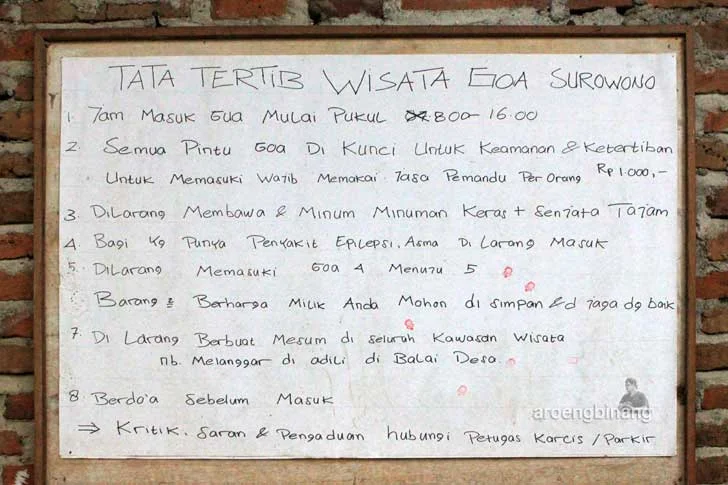 TATA TERTIB WISATA GOA SUROWONO
1. Jam Masuk Gua Mulai Pukul 800 - 16.00
2. Semua Pintu Goa Di Kunci Untuk Keamanan & Ketertiban
Untuk Memasuki Wajib Memakai Jasa Pemandu Per Orang Rp 1.000,-
3. Dilarang Membawa & Minum Minuman Keras + Senjata Tajam
4. Bagi Yg Punya Penyakit Epilepsi, Asma Di Larang Masuk
5. Dilarang Memasuki Goa 4 Menuju 5
Barang2 Berharga Milik Anda Mohon di simpan & d jaga dg baik
7. Di Larang Berbuat Mesum di seluruh Kawasan Wisata
nb. Melanggar di adili di Balai Desa.
8. Berdo'a Sebelum Masuk
⇒ Kritik, Saran & Pengaduan hubungi Petugas Karcis / Parkir
aroengbinang